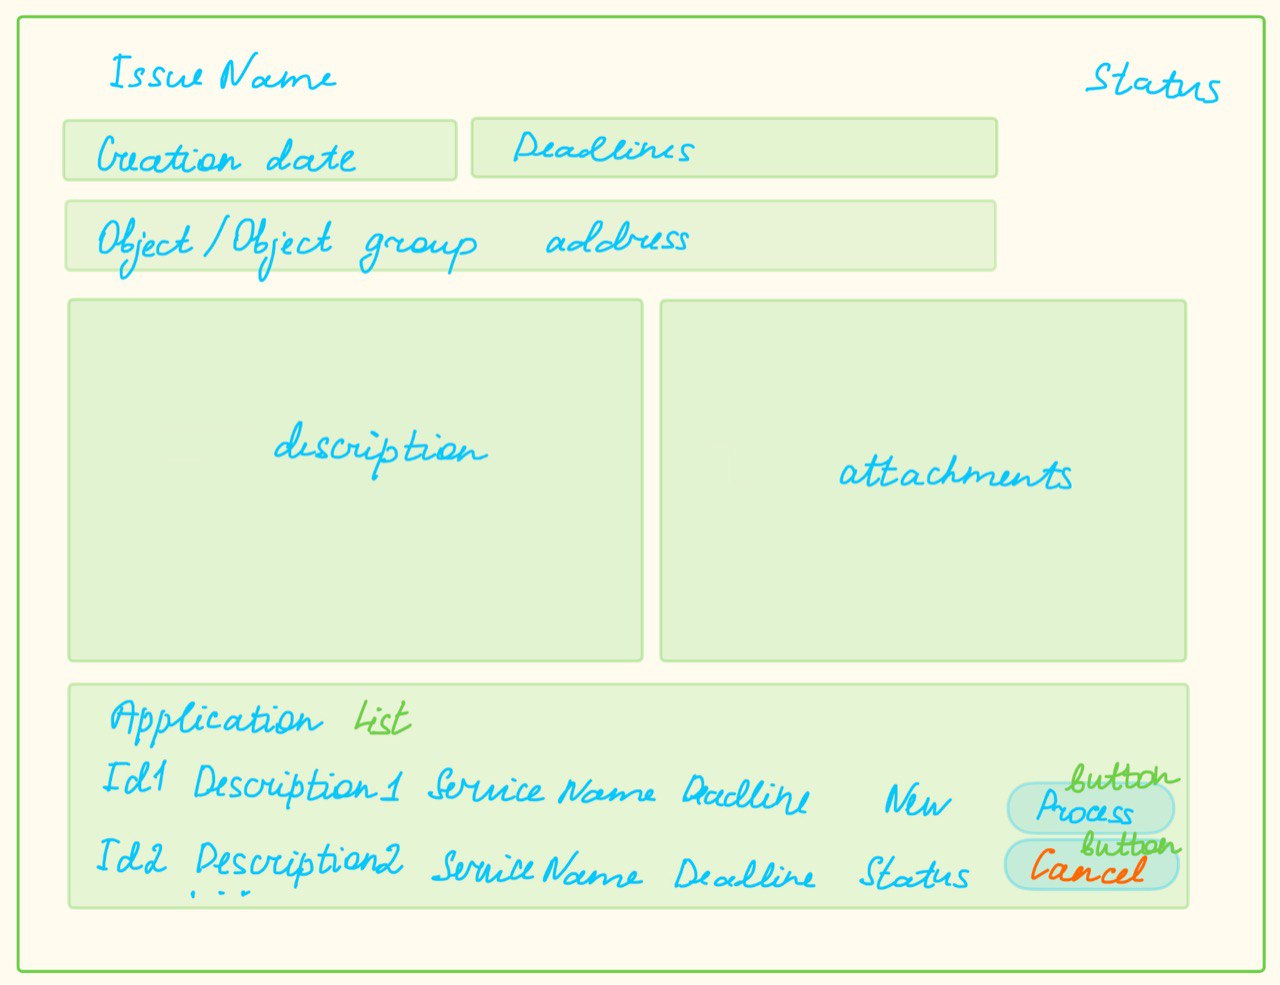 Issue Name Status
Creation date Deadlines
Object/Object group address
description
attachments
Application List
Id1 Description1 Service Name Deadline New button Process
Id2 Description2 Service Name Deadline Status button Cancel
...